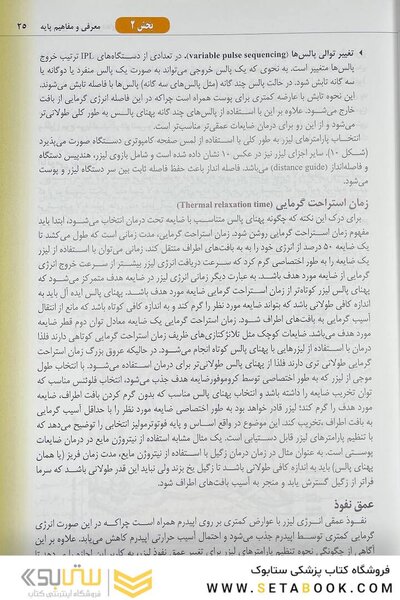 بخش ۲ معرفی و مفاهیم پایه ۲۵
تغییر توالی پالس‌ها (variable pulse sequencing). در تعدادی از دستگاه‌های IPL ترتیب خروج
پالس‌ها متغییر است. به نحوی که یک پالس خروجی می‌تواند به صورت یک پالس منفرد یا دوگانه یا
سه گانه تابش شود. در حالت پالس چند گانه (مثل پالس‌های سه گانه) پالس‌ها با فاصله تابش می‌شوند.
این نحوه تابش با عارضه کمتری برای پوست همراه است چراکه در این فاصله انرژی گرمایی از بافت
خارج می‌شود. علاوه بر این با استفاده از پالس‌های چند گانه پهنای پالس به طور کلی طولانی‌تر
می‌شود و از این رو برای درمان ضایعات عمقی‌تر مناسب‌تر است.
انتخاب پارامترهای لیزر به طور کلی با استفاده از لمس صفحه کامپیوتری دستگاه صورت می‌پذیرد
(شکل ۱۰). سایر اجزای لیزر نیز در عکس ۱۰ نشان داده شده است و شامل بازوی لیزر، هندپیس دستگاه
و فاصله‌انداز (distance guide) می‌باشد. فاصله انداز باعث حفظ فاصله ثابت بین سر دستگاه لیزر و پوست
می‌شود.
زمان استراحت گرمایی (Thermal relaxation time)
برای درک این نکته که چگونه پهنای پالس متناسب با ضایعه تحت درمان انتخاب می‌شود، ابتدا باید
مفهوم زمان استراحت گرمایی روشن شود. زمان استراحت گرمایی، مدت زمانی است که طول می‌کشد تا
یک ضایعه ۵۰ درصد از انرژی خود را به به بافت‌های اطراف منتقل کند. زمانی می‌توان با استفاده از لیزر
یک ضایعه را به طور اختصاصی گرم کرد که سرعت دریافت انرژی لیزر بیشتر از سرعت خروج انرژی
گرمایی از ضایعه هدف باشد. به عبارت دیگر زمانی انرژی لیزر در ضایعه هدف متمرکز می‌شود که
پهنای پالس لیزر کوتاه‌تر از زمان استراحت گرمایی ضایعه مورد هدف باشد. پهنای پالس ایده آل باید به
اندازه کافی طولانی باشد که بتواند ضایعه مورد نظر را گرم کند و به اندازه کافی کوتاه باشد که مانع از انتقال
آسیب گرمایی به بافت‌های اطراف شود. زمان استراحت گرمایی یک ضایعه معادل توان دوم قطر ضایعه
مورد هدف می‌باشد. ضایعات کوچک مثل تلانژکتازی‌های ظریف زمان استراحت گرمایی کوتاهی دارند فلذا
درمان با استفاده از لیزرهایی با پهنای پالس کوتاه انجام می‌شود. در حالیکه عروق بزرگ زمان استراحت
گرمایی طولانی تری دارند فلذا از پهنای پالس طولانی‌تر برای درمان استفاده می‌شود. با انتخاب طول
موجی از لیزر که به طور اختصاصی توسط کروموفورضایعه هدف جذب می‌شود، انتخاب فلوئنس مناسب که
توان تخریب ضایعه را داشته باشد و انتخاب پهنای پالس مناسب که بدون گرم کردن بافت اطراف، ضایعه
مورد هدف را گرم کند؛ لیزر قادر خواهد بود به طور اختصاصی ضایعه مورد نظر را با حداقل آسیب گرمایی
به بافت اطراف،تخریب کند. این موضوع در واقع اساس و پایه فوتوترمولیز انتخابی را توضیح می‌دهد که
با تنظیم پارامترهای لیزر قابل دستیابی است. یک مثال مشابه استفاده از نیتروژن مایع در درمان ضایعات
پوستی است. به عنوان مثال در زمان درمان زگیل با استفاده از نیتروژن مایع، مدت زمان فریز (یا همان
پهنای پالس) باید به اندازه کافی طولانی باشد تا زگیل یخ بزند ولی نباید این قدر طولانی باشد که سرما
فراتر از زگیل گسترش یابد و منجر به آسیب بافت‌های اطراف شود.
عمق نفوذ
نفوذ عمقی انرژی لیزر با عوارض کمتری بر روی اپیدرم همراه است چراکه در این صورت انرژی
گرمایی کمتری توسط اپیدرم جذب می‌شود و احتمال آسیب حرارتی اپیدرم کاهش می‌یابد. علاوه بر این
آگاهی از چگونگی نحوه تنظیم پارامترهای لیزر برای تغییر عمق نفوذ لیزر، به کاربر
فروشگاه کتاب پزشکی ستابوک
WWW.SETABOOK.COM
ستابوک
فروشگاه اینترنتی کتاب